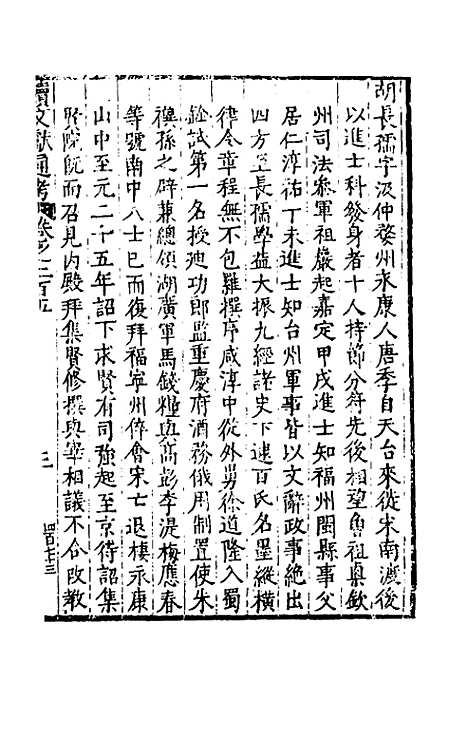 胡長孺字汲仲婺州永康人唐季自天台來徙宋南渡後
以進士科發身者十人持節分符先後相望曾祖㮚欽
州司法參軍祖巖起嘉定甲戌進士知福州閩縣事父
居仁淳祐丁未進士知台州軍事皆以文辭政事絶出
四方至長孺學益大振九經諸史下逮百氏名墨縱橫
律令章程無不包羅撰序咸淳中從外舅徐道隆入蜀
銓試第一名授廸功郎監重慶府酒務俄用制置使朱
禩孫之辟兼總領湖廣軍馬錢糧與高彭李湜梅應春
等號南中八士已而復拜福寧州倅會宋亡退棲永康
山中至元二十五年詔下求賢有司強起至京待詔集
賢院旣而召見内殿拜集賢修撰與宰相議不合改教
續文獻通考 卷之二百五 三